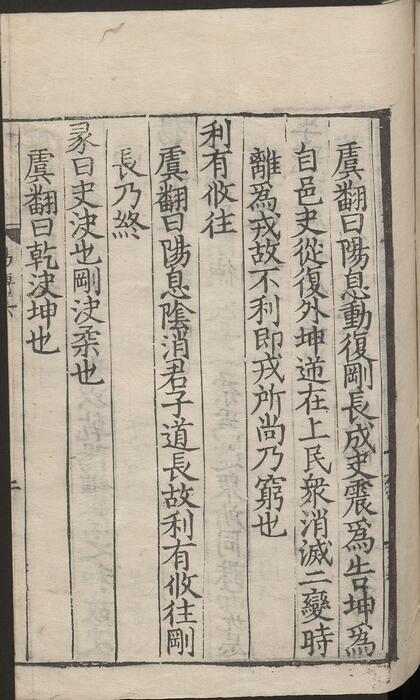 虞翻曰陽息動復剛長成夬震爲告坤爲
自邑夬從復外坤逆在上民衆消滅二變時
離為戎故不利即戎所尚乃窮也
利有攸往
虞翻曰陽息陰消君子道長故利有攸往剛
長乃終
彖曰夬決也剛決柔也
虞翻曰乾決坤也